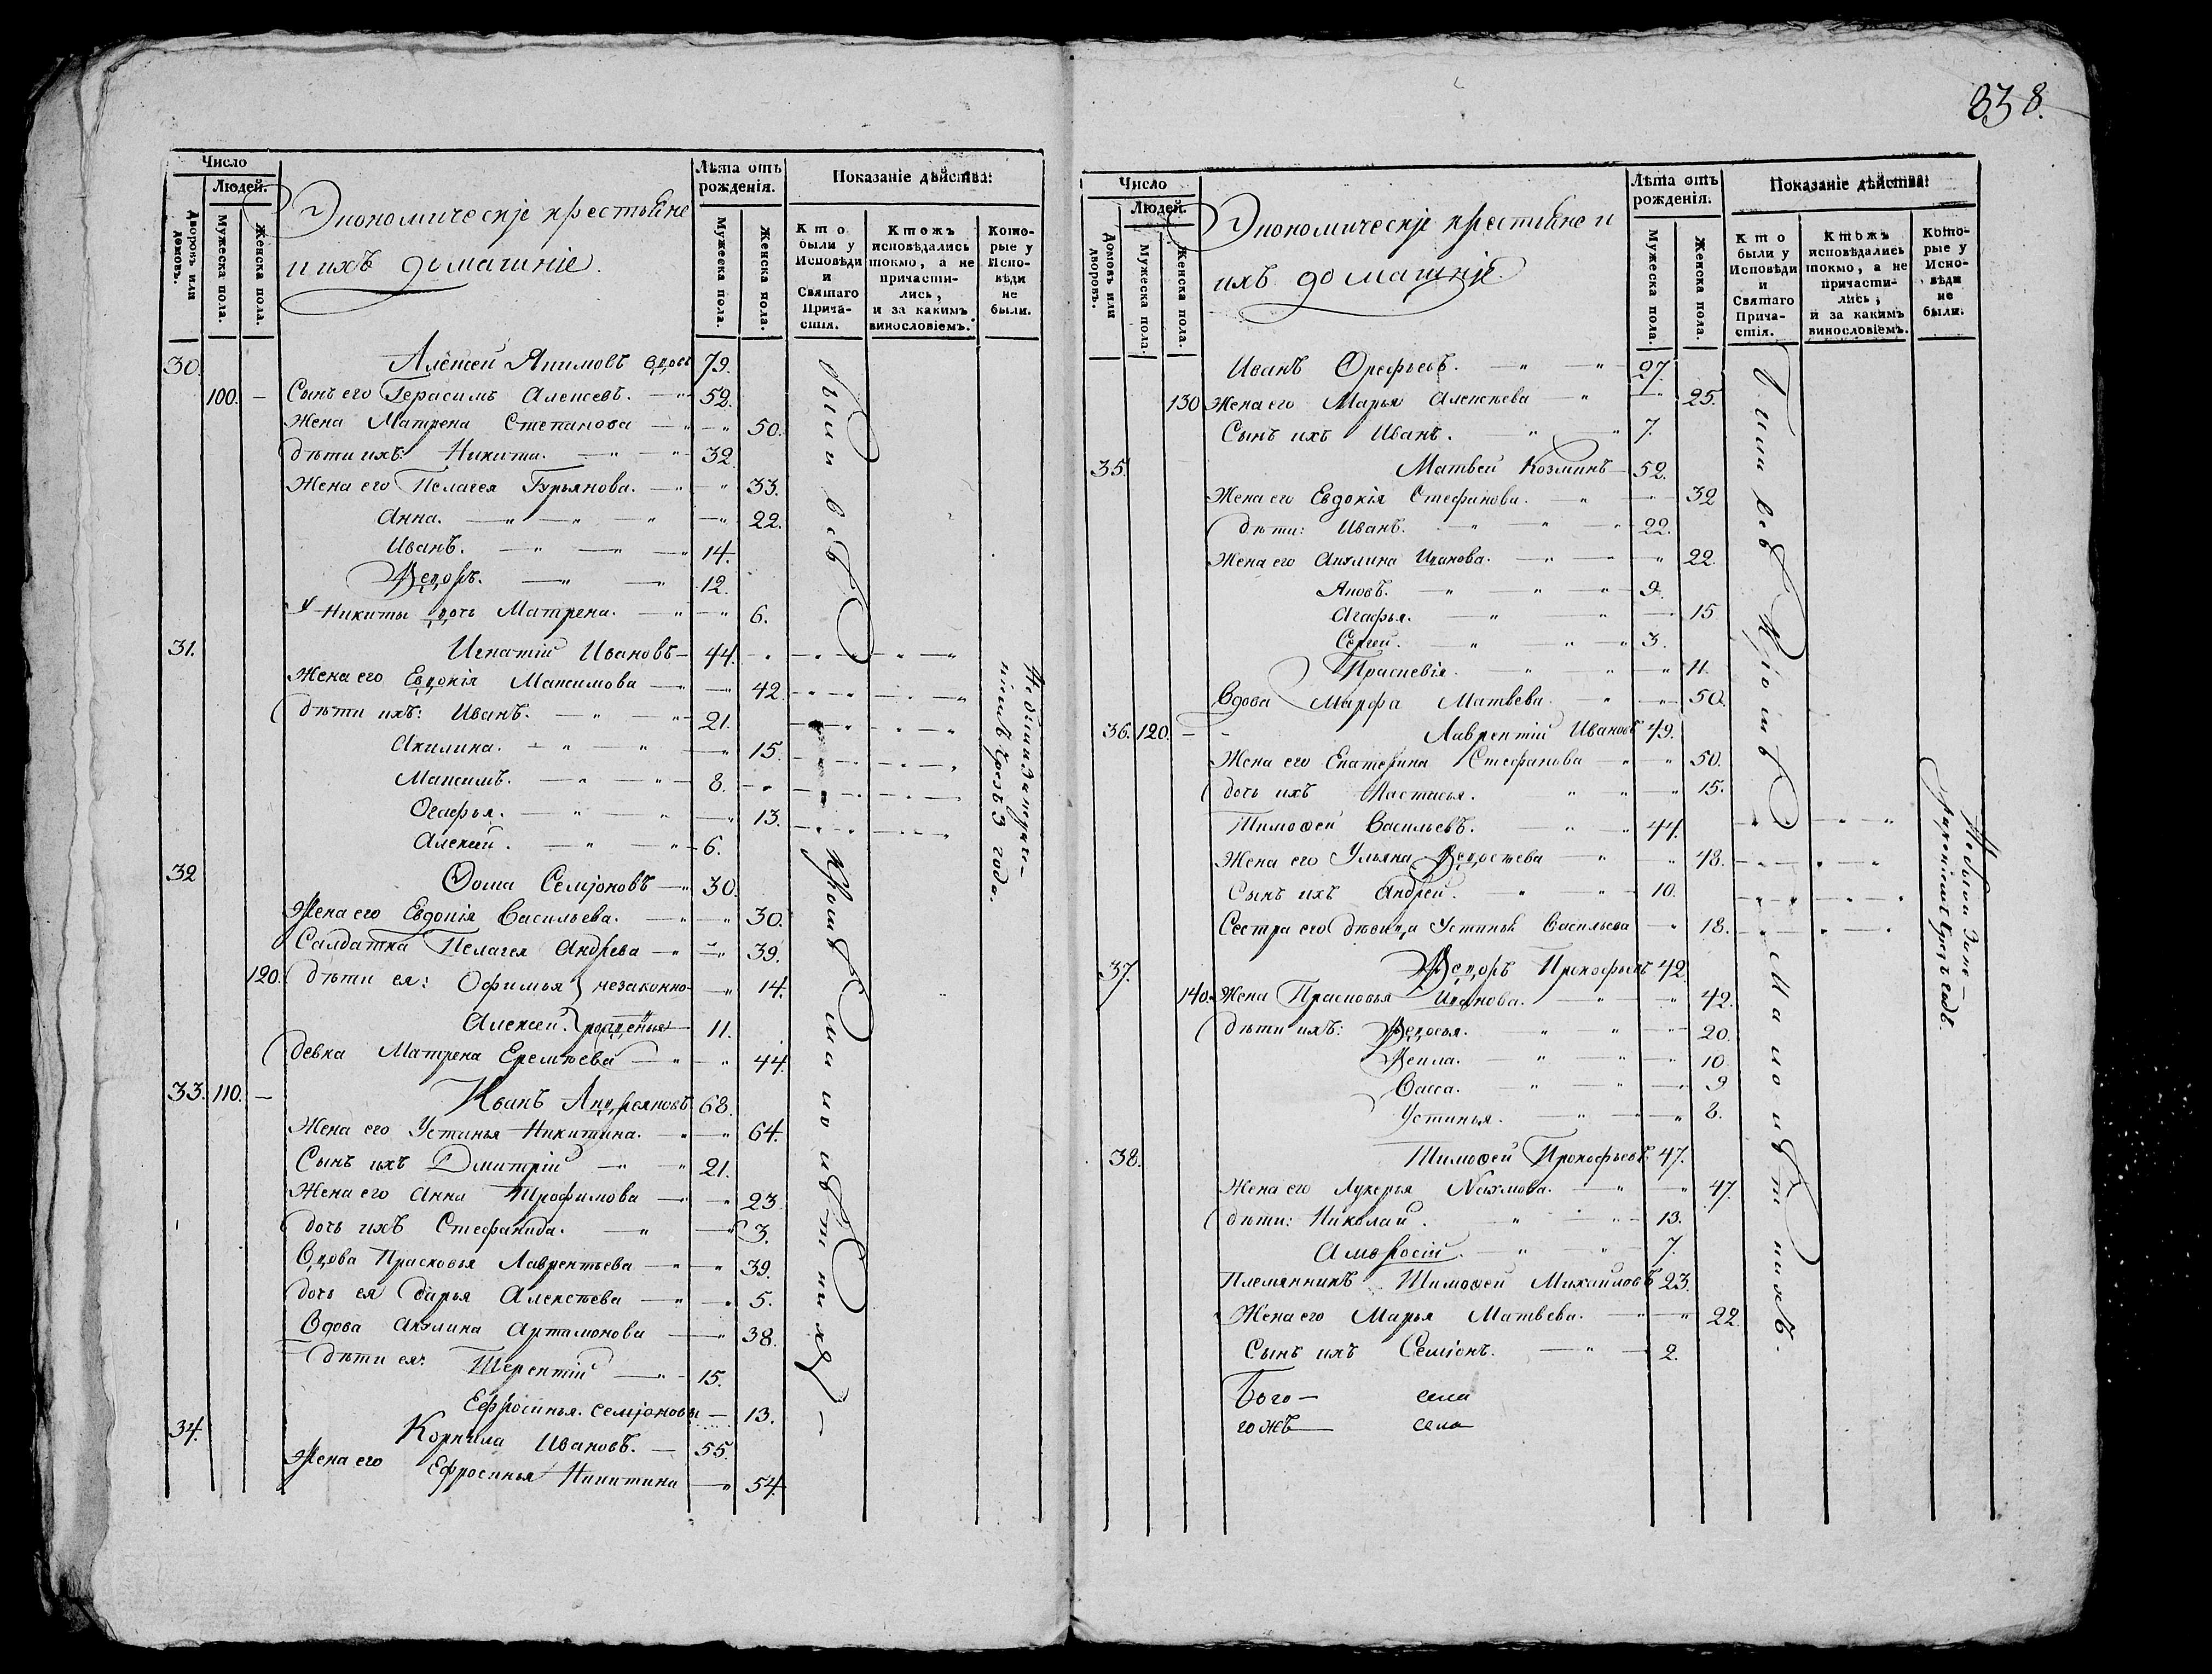 338.
Число
Людей.
Дворовъ или домовъ.
Мужеска пола.
Женска пола.
Экономическіе крестьяне
и ихъ домашніе.
Лѣта отъ рожденія.
Мужеска пола.
Женска пола.
Показаніе дѣйства:
Кто были у Исповѣди и Святаго Причастія.
Ктожъ исповѣдались токмо, а не причастились, и за какимъ винословіемъ.
Которые у Исповѣди не были.
30. Алексей Акимовъ вдовъ 79.
100. — Сынъ его Герасимъ Алексевъ. 52.
Жена Матрена Степанова 50.
дѣти ихъ: Никита. 32.
Жена его Пелагея Гурьянова. 33.
Анна. 22.
Иванъ. 14.
Ѳедоръ. 12.
У Никиты дочь Матрена. 6.
31. Игнатій Ивановъ 44.
Жена его Евдокія Максимова 42.
дѣти ихъ: Иванъ. 21.
Акилина. 15.
Максимъ. 8.
Огафья. 13.
Алексей. 6.
32 Ѳома Семіоновъ 30.
Жена его Евдокія Васильева. 30.
Салдатка Пелагея Андрева 39.
120. дѣти ея: Офимья } незаконно- 14.
Алексей. } рожденыя 11.
девка Матрена Еремѣева 44.
33. 110. — Иванъ Андреяновъ 68.
Жена его Устинья Никитина. 64.
Сынъ ихъ Дмитрій 21.
Жена его Анна Трофимова 23.
дочь ихъ Стефанида. 3.
Вдова Прасковья Лаврентьева 39.
дочь ея Дарья Алексѣева 5.
Вдова Акулина Артамонова 38.
дѣти ея: Терентій 15.
Ефросинья. семіоновы 13.
34. Корнила Ивановъ. 55.
Жена его Ефросинья Никитина 54.
были всѣ кромѣ малолѣтнихъ
года.
Число
Людей.
Домовъ или дворовъ.
Мужеска пола.
Женска пола.
Экономическіе крестьяне и
ихъ домашніе.
Лѣта отъ рожденія.
Мужеска пола.
Женска пола.
Показаніе дѣйства:
Кто были у Исповѣди и Святаго Причастія.
Ктожъ исповѣдались токмо, а не причастились; и за какимъ винословіемъ.
Которые у Исповѣди не были.
Иванъ Орефьевъ. 27.
130 Жена его Марья Алексѣева 25.
Сынъ ихъ Иванъ. 7.
35. Матвей Козминъ 52.
Жена его Евдокія Стефанова. 32
дѣти: Иванъ. 22.
Жена его Акулина Иванова. 22.
Яковъ. 9.
Агафья. 15
Сергей. 3.
Праскевія. 11.
Вдова Марфа Матвѣева. 50.
36. 120. Лаврентій Ивановъ 49.
Жена его Екатерина Стефанова 50.
дочь ихъ Настасья. 15.
Тимоѳей Васильевъ. 44.
Жена его Ульяна Ѳедосѣева 48.
Сынъ ихъ Андрей. 10.
Сестра его дѣвица Устинья Васильева 18.
37. Ѳедоръ Прокофьевъ 42.
140. Жена Прасковья Иванова. 42.
дѣти их: Ѳедосья. 20.
Ѳекла. 10
Васса. 9
Устинья. 8.
38. Тимоѳей Прокофьевъ 47.
Жена его Лукерья Наумова. 47.
дѣти: Николай. 13.
Амвросій. 7.
Племянникъ Тимоѳей Михаиловъ 23.
Жена его Марья Матвѣева. 22.
Сынъ ихъ Семіонъ. 2.
Бого— села
гожъ— села
Были всѣ кромѣ малолѣтнихъ.